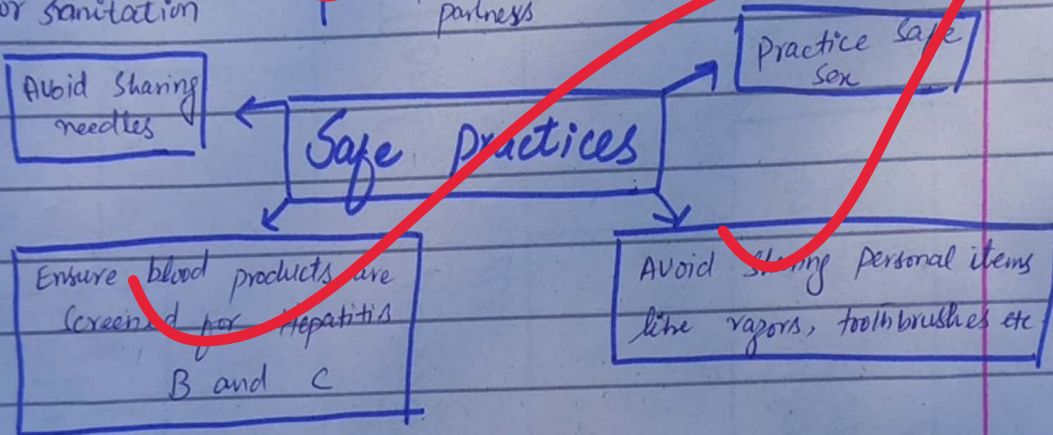 or sanitation
partness
Practice safe
sex
Avoid Sharing
needles
Safe practices
Ensure blood products are
screened for Hepatitis
B and C
Avoid sharing personal items
like razors, toothbrushes etc